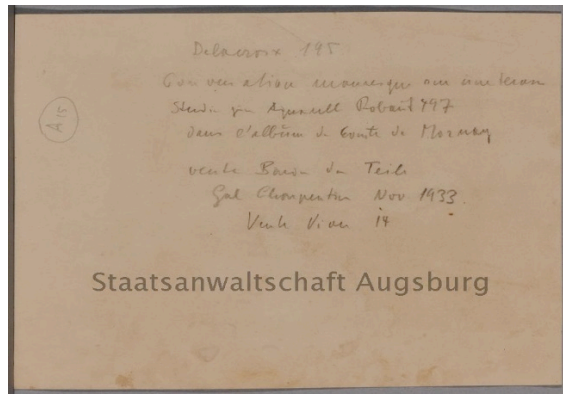 Delacroix 195
Conversation mauresque sur une terrasse
Studie zu Aquarell Robaut 497
dans l'album de Comte de Mornay
A15
vente Baron du Teil
Gal Charpentier Nov 1933.
Vente Viau 14
Staatsanwaltschaft Augsburg